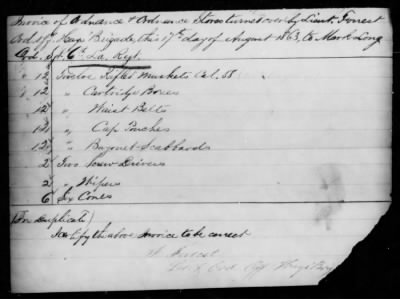 Invoice of Ordnance & Ordnance Stores turned over by Lieut. Forrest
Ord. Offr. Hays Brigade, This 17th day of August 1863, to Mark Long
Ord. Sgt. 6th La. Regt.
" 12 Twelve Rifled Muskets Cal. 58
" 12 " Cartridge Boxes
12 " Waist Belts
12 " Cap Pouches
12 " Bayonet Scabbards
2 Two Screw Drivers
2 " Wipers
6 Six Cones
(In duplicate)
I certify the above Invoice to be correct
Forrest
Lieut & Ord. Off Hays Brig